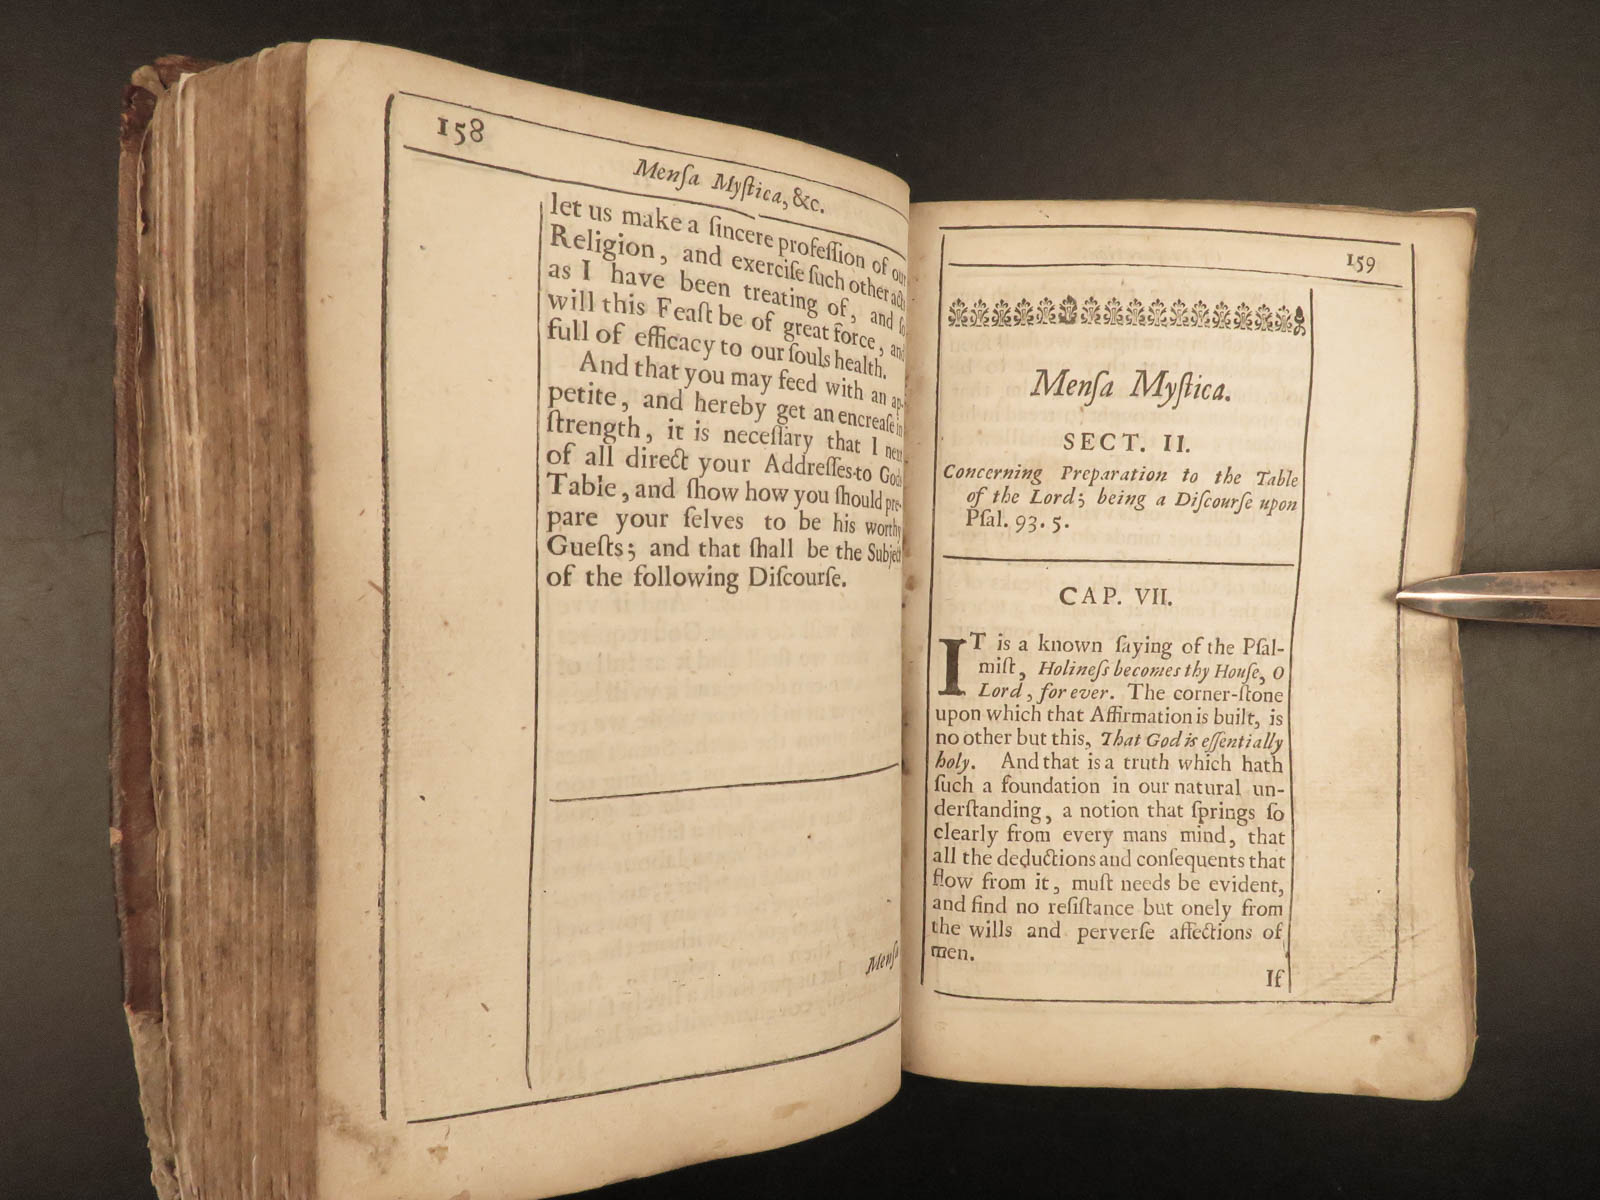 158
Menſa Myſtica, &c.
let us make a ſincere profeſſion of our
Religion, and exerciſe ſuch other acts
as I have been treating of, and ſo
will this Feaſt be of great force, and
full of efficacy to our ſouls health.
And that you may feed with an ap-
petite, and hereby get an encreaſe in
ſtrength, it is neceſſary that I next
of all direct your Addreſſes to Gods
Table, and ſhow how you ſhould pre-
pare your ſelves to be his worthy
Gueſts; and that ſhall be the Subject
of the following Diſcourſe.
Menſa
159
Menſa Myſtica.
SECT. II.
Concerning Preparation to the Table
of the Lord; being a Diſcourſe upon
Pſal. 93. 5.
CAP. VII.
IT is a known ſaying of the Pſal-
miſt, Holineſs becomes thy Houſe, O
Lord, for ever. The corner-ſtone
upon which that Affirmation is built, is
no other but this, That God is eſſentially
holy. And that is a truth which hath
ſuch a foundation in our natural un-
derſtanding, a notion that ſprings ſo
clearly from every mans mind, that
all the deductions and conſequents that
flow from it, muſt needs be evident,
and find no reſiſtance but onely from
the wills and perverſe affections of
men.
If